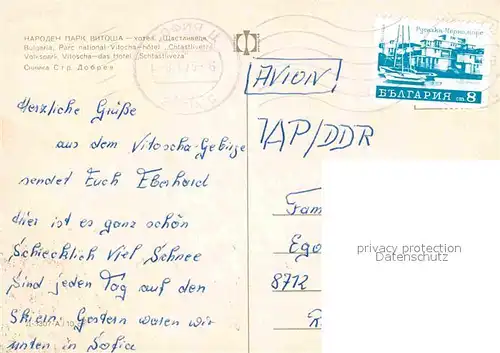 НАРОДЕН ПАРК ВИТОША — хотел „Щастливеца"
Bulgaria, Parc national Vitocha-hôtel „Chtastliveтs"
Volkspark Vitoscha-das Hotel „Schtastliveza"
Снимка Стр. Добрев
AVION
БЪЛГАРИЯ ст. 8
IAP/DDR
Herzliche Grüße
aus dem Vitoscha-Gebirge
sendet Euch Eberhard
Hier ist es ganz schön
Schiecklich viel Schnee
Sind jeden Tag auf den
Skiern. Gestern waren wir
unten in Sofia
Fam
Ego
8712
privacy protection
Datenschutz